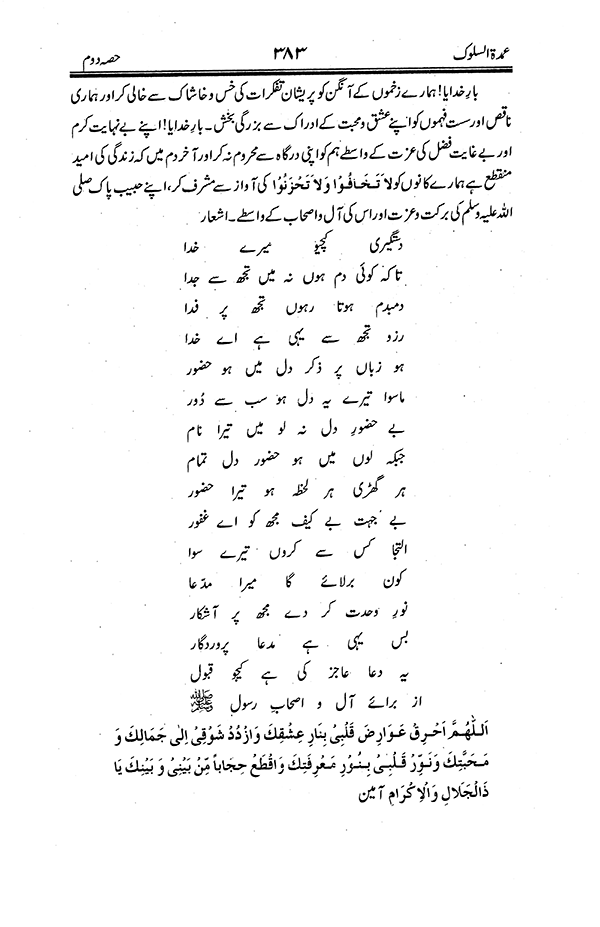 عمدۃ السلوک ۳۸۳ حصہ دوم
بارِ خدایا! ہمارے زخموں کے آنگن کو پریشان تفکرات کی خس و خاشاک سے خالی کر اور ہماری
ناقص اور سست فہموں کو اپنے عشق و محبت کے ادراک سے بزرگی بخش۔ بارِ خدایا! اپنے بے نہایت کرم
اور بے غایت فضل کی عزت کے واسطے ہم کو اپنی درگاہ سے محروم نہ کر اور آخر دم میں کہ زندگی کی امید
منقطع ہے ہمارے کانوں کو لَا تَخَافُوْا وَلَا تَحْزَنُوْا کی آواز سے مشرف کر، اپنے حبیب پاک صلی
اللہ علیہ وسلم کی برکت و عزت اور اس کی آل و اصحاب کے واسطے۔ اشعار
دستگیری کیجیؤ میرے خدا
تاکہ کوئی دم ہوں نہ میں تجھ سے جدا
دمبدم ہوتا رہوں تجھ پر فدا
رزد تجھ سے یہی ہے اے خدا
ہو زباں پر ذکر دل میں ہو حضور
ماسوا تیرے یہ دل ہو سب سے دُور
بے حضورِ دل نہ لو میں تیرا نام
جبکہ لوں میں ہو حضور دل تمام
ہر گھڑی ہر لحظہ ہو تیرا حضور
بے جہت بے کیف مجھ کو اے غفور
التجا کس سے کروں تیرے سوا
کون برلائے گا میرا مدّعا
نورِ وحدت کر دے مجھ پر آشکار
بس یہی ہے مدعا پروردگار
یہ دعا عاجز کی ہے کیجو قبول
از برائے آل و اصحابِ رسول ﷺ
اَللّٰهُمَّ اَحْرِقْ عَوَارِضَ قَلْبِیْ بِنَارِ عِشْقِكَ وَازْدُدْ شَوْقِیْ اِلٰی جَمَالِكَ وَ
مَحَبَّتِكَ وَنَوِّرْ قَلْبِیْ بِنُوْرِ مَعْرِفَتِكَ وَاقْطَعْ حِجَاباً مِّنْ بَیْنِیْ وَ بَیْنِكَ یَا
ذَالْجَلَالِ وَالْاِكْرَامِ آمین